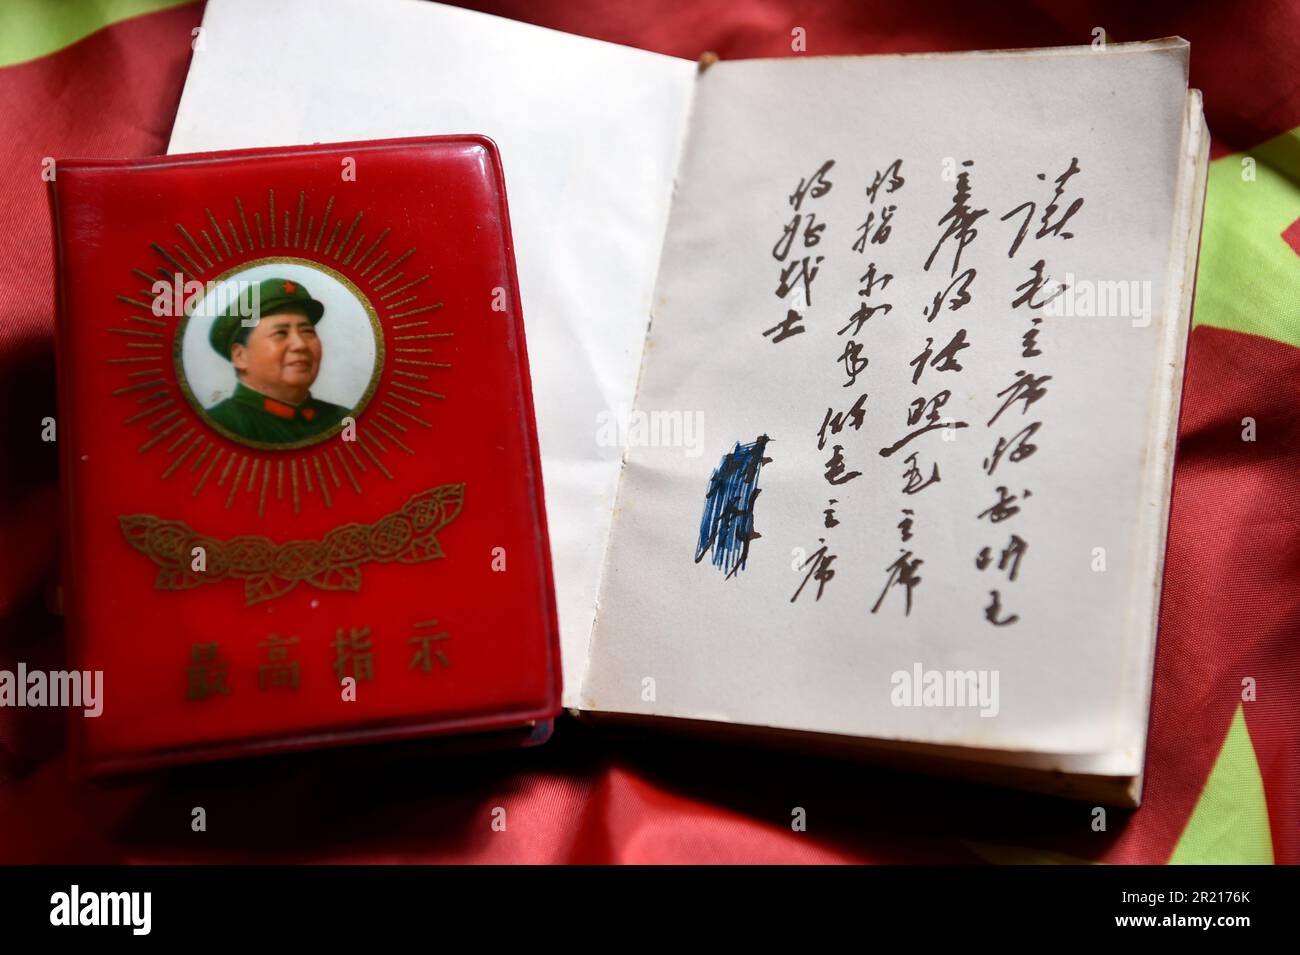 最高指示
读毛主席的书听毛
主席的话照毛主席
的指示办事做毛主席
的好战士
alamy
Image ID: 2R2176K
www.alamy.com